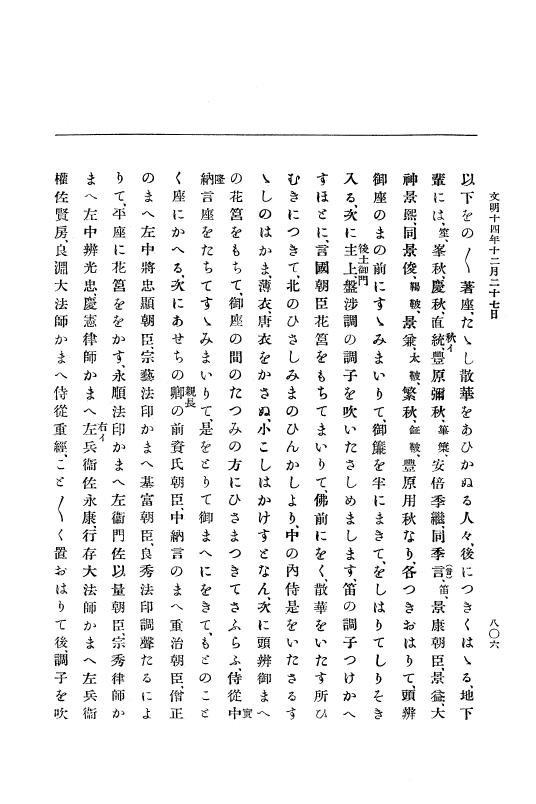 文明十四年十二月二十七日
八〇六
以下をの〱著座、たゝし散華をあひかぬる人々、後につきくはゝる、地下
輩には、笙、峯秋、慶秋、直統、豐原彌秋、篳篥、安倍季繼、同季言、笛、景康朝臣、景益、大
秋イ
(音)
神景熙、同景俊、羯鼓、景兼、太鼓、繁秋、鉦鼓、豐原用秋なり、各つきおはりて、頭辨
御座のまの前にすゝみまいりて、御簾を半にまきて、をしはりてしりそき
入る、次に主上、盤渉調の調子を吹いたさしめまします、笛の調子つけかへ
後土御門
すほとに、言國朝臣花筥をもちてまいりて、佛前にをく、散華をいたす所ひ
むきにつきて、北のひさしみまのひんかしより、中の內侍是をいたさるす
ゝしのはかま、薄衣、唐衣をかさぬ、小こしはかけすとなん、次に頭辨御まへ
の花筥をもちて、御座の間のたつみの方にひさまつきてさふらふ、侍從中
實
隆
納言座をたちてすゝみまいりて、是をとりて御まへにをきて、もとのこと
く座にかへる、次にあせちの卿の前資氏朝臣、中納言のまへ重治朝臣、僧正
親長
のまへ左中將忠顯朝臣、宗藝法印かまへ基富朝臣、良秀法印調聲たるによ
りて、平座に花筥ををかす、永順法印かまへ左衞門佐以量朝臣、宗秀律師か
まへ左中辨光忠、慶憲律師かまへ左兵衞佐永康、行存大法師かまへ左兵衞
右イ
權佐賢房、良淵大法師かまへ侍從重經、こと〱く置おはりて後調子を吹